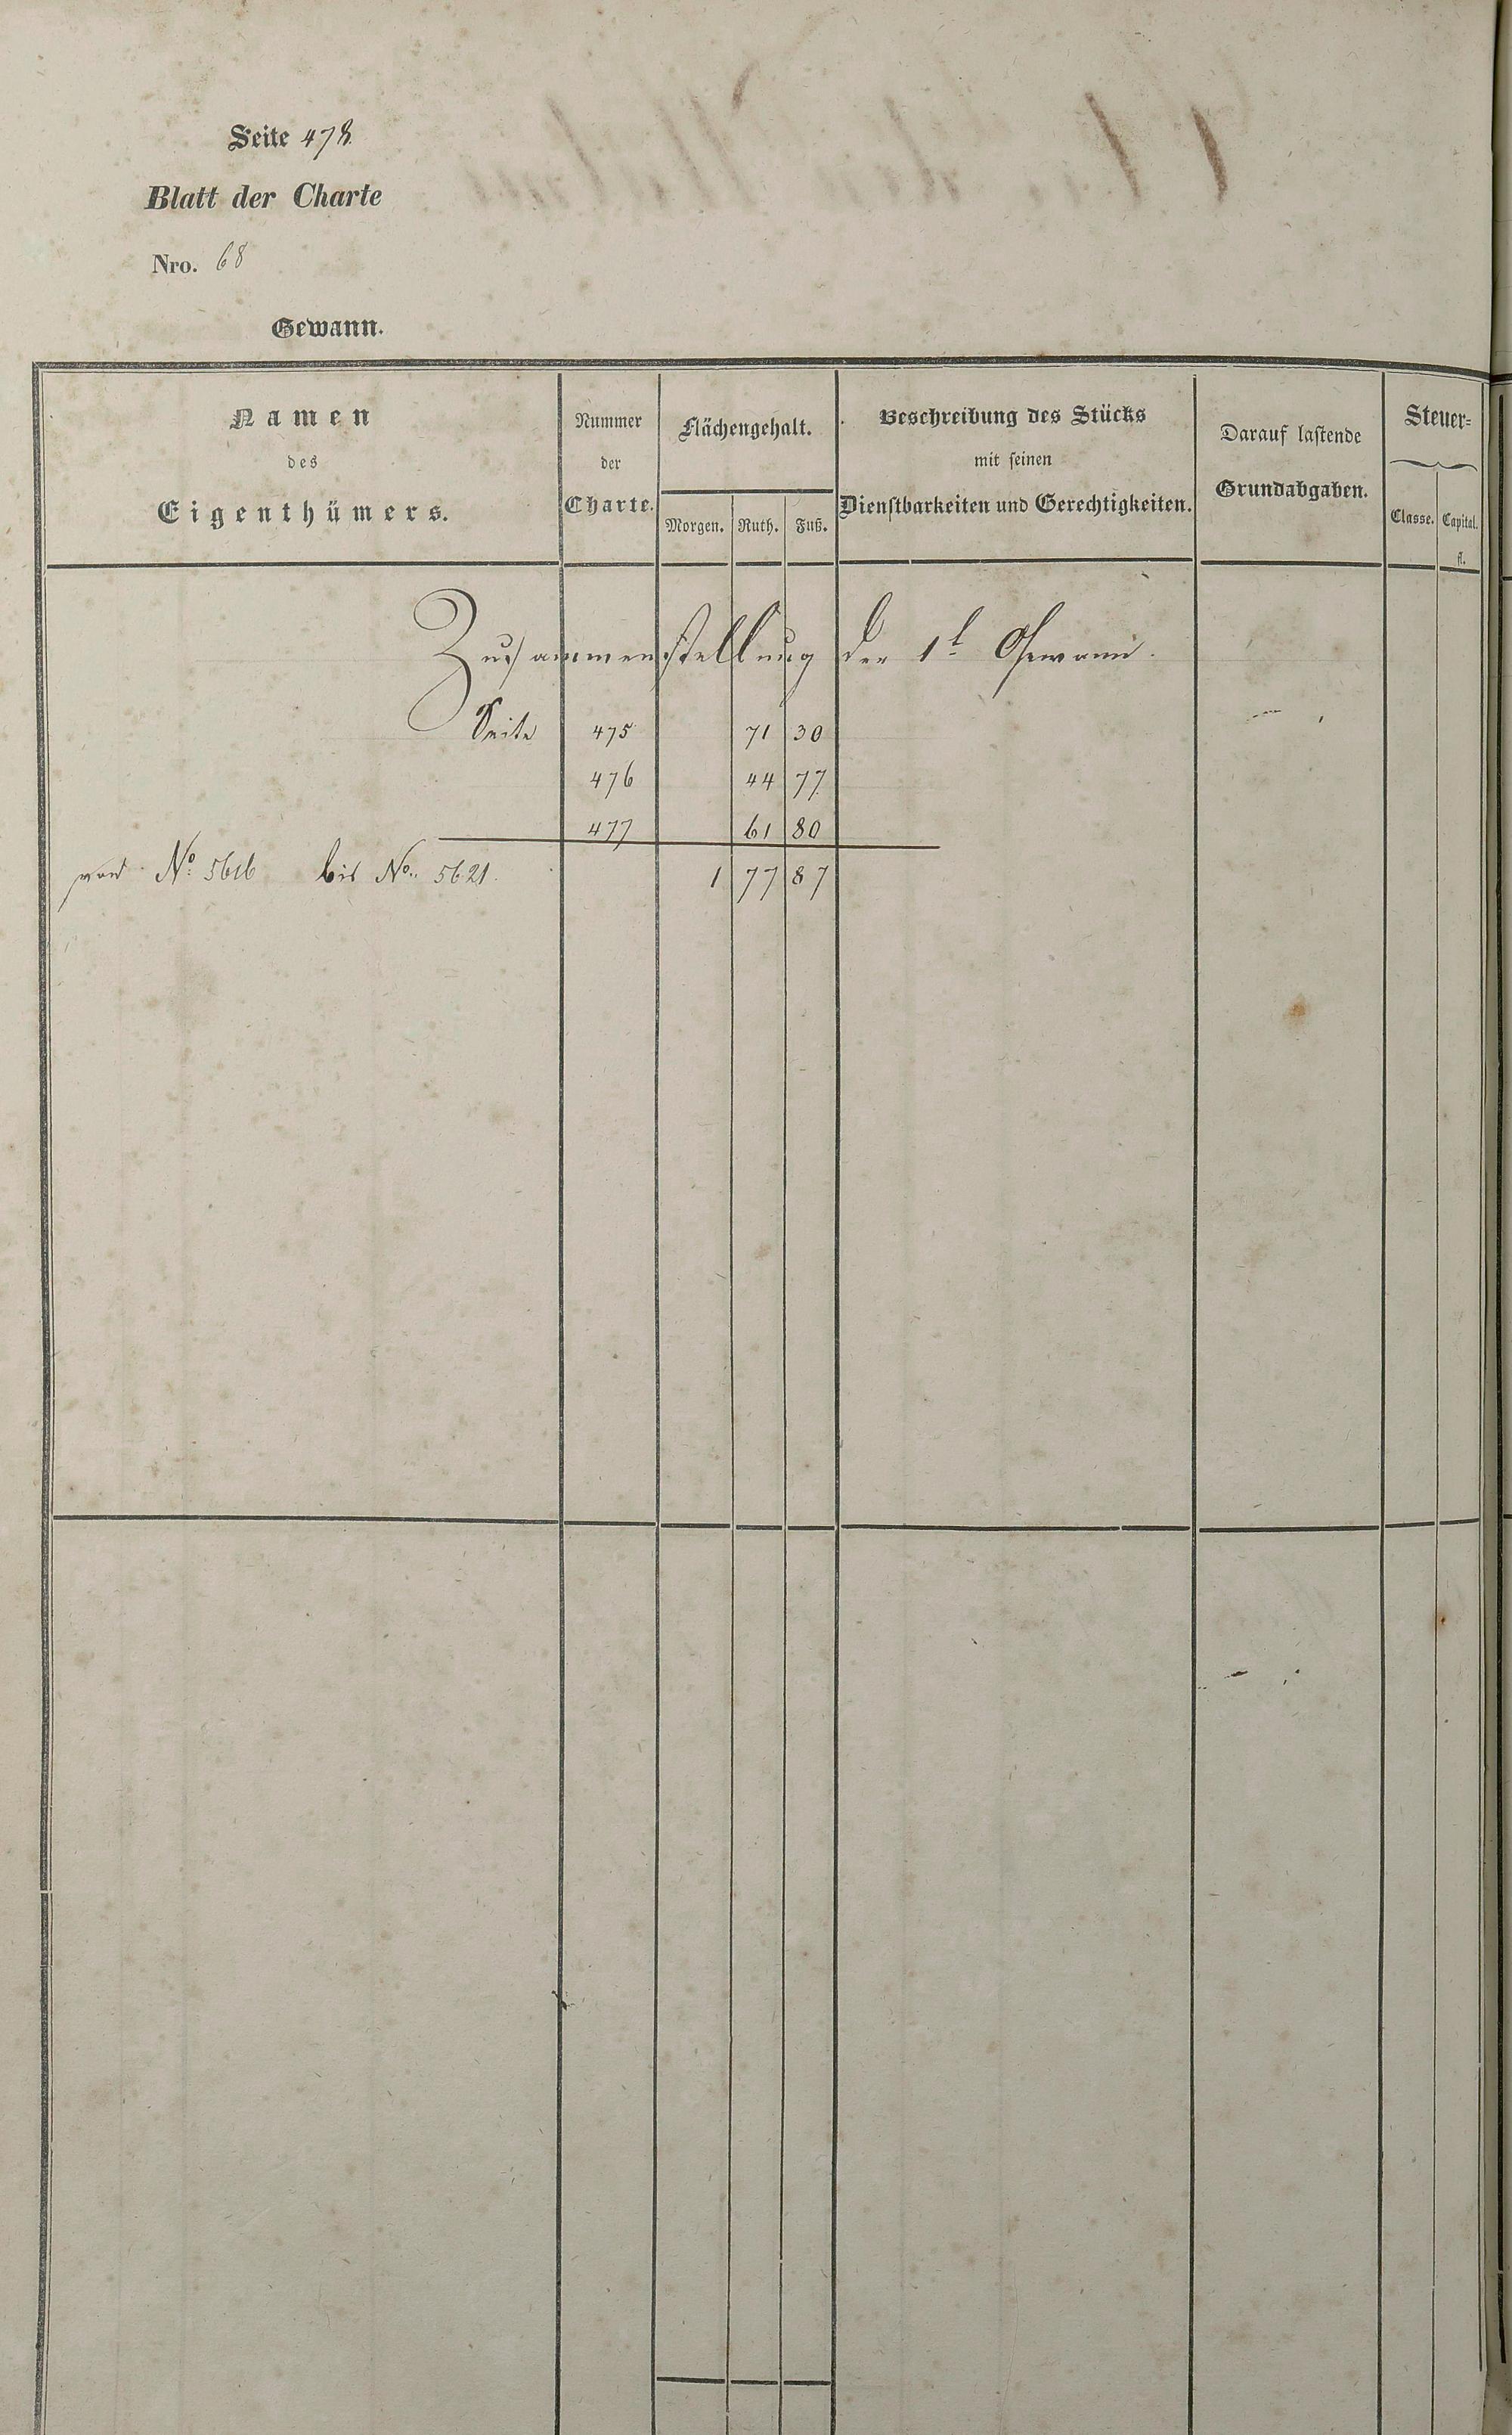 Seite 478
Blatt der Charte
Nro. 68
Gewann.
Namen des Eigenthümers.
Nummer der Charte.
Flächengehalt.
Morgen. Ruth. Fuß.
Beschreibung des Stücks mit seinen Dienstbarkeiten und Gerechtigkeiten.
Darauf lastende Grundabgaben.
Steuer=
Classe. Capital.
fl.
Zusammenstellung der 1t Gewann.
Seite 475 71 30
476 44 77
477 61 80
von No: 5616 bis No: 5621. 1 77 87